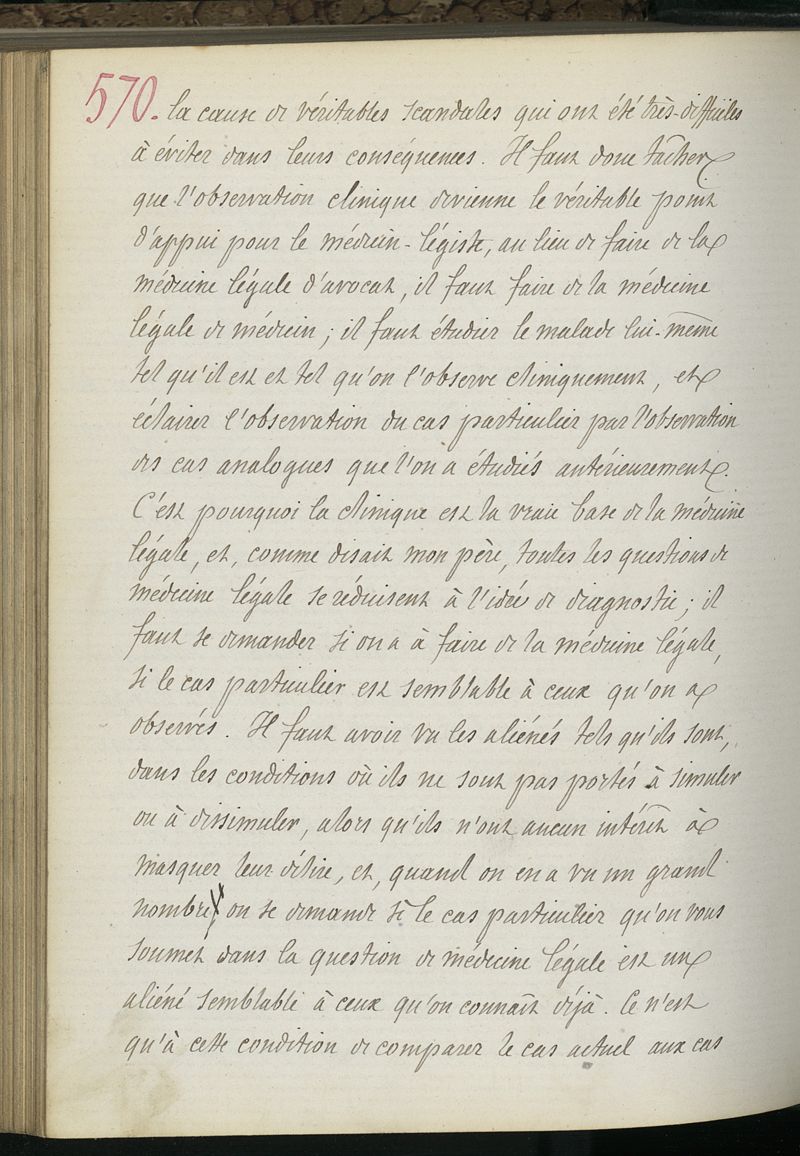 570.
la cause de véritables scandales qui ont été très-difficiles
à éviter dans leurs conséquences. Il faut donc tâcher
que l'observation clinique devienne le véritable point
d'appui pour le médecin-légiste, au lieu de faire de la
médecine légale d'avocat, il faut faire de la médecine
légale de médecin ; il faut étudier le malade lui-même
tel qu'il est et tel qu'on l'observe cliniquement, et
éclairer l'observation du cas particulier par l'observation
des cas analogues que l'on a étudiés antérieurement.
C'est pourquoi la clinique est la vraie base de la médecine
légale, et, comme disait mon père, toutes les questions de
médecine légale se réduisent à l'idée de diagnostic ; il
faut se demander si on a à faire de la médecine légale,
si le cas particulier est semblable à ceux qu'on a
observés. Il faut avoir vu les aliénés tels qu'ils sont,
dans les conditions où ils ne sont pas portés à simuler
ou à dissimuler, alors qu'ils n'ont aucun intérêt à
masquer leur délire, et, quand on en a vu un grand
nombre, on se demande si le cas particulier qu'on vous
soumet dans la question de médecine légale est un
aliéné semblable à ceux qu'on connaît déjà. Ce n'est
qu'à cette condition de comparer le cas actuel aux cas